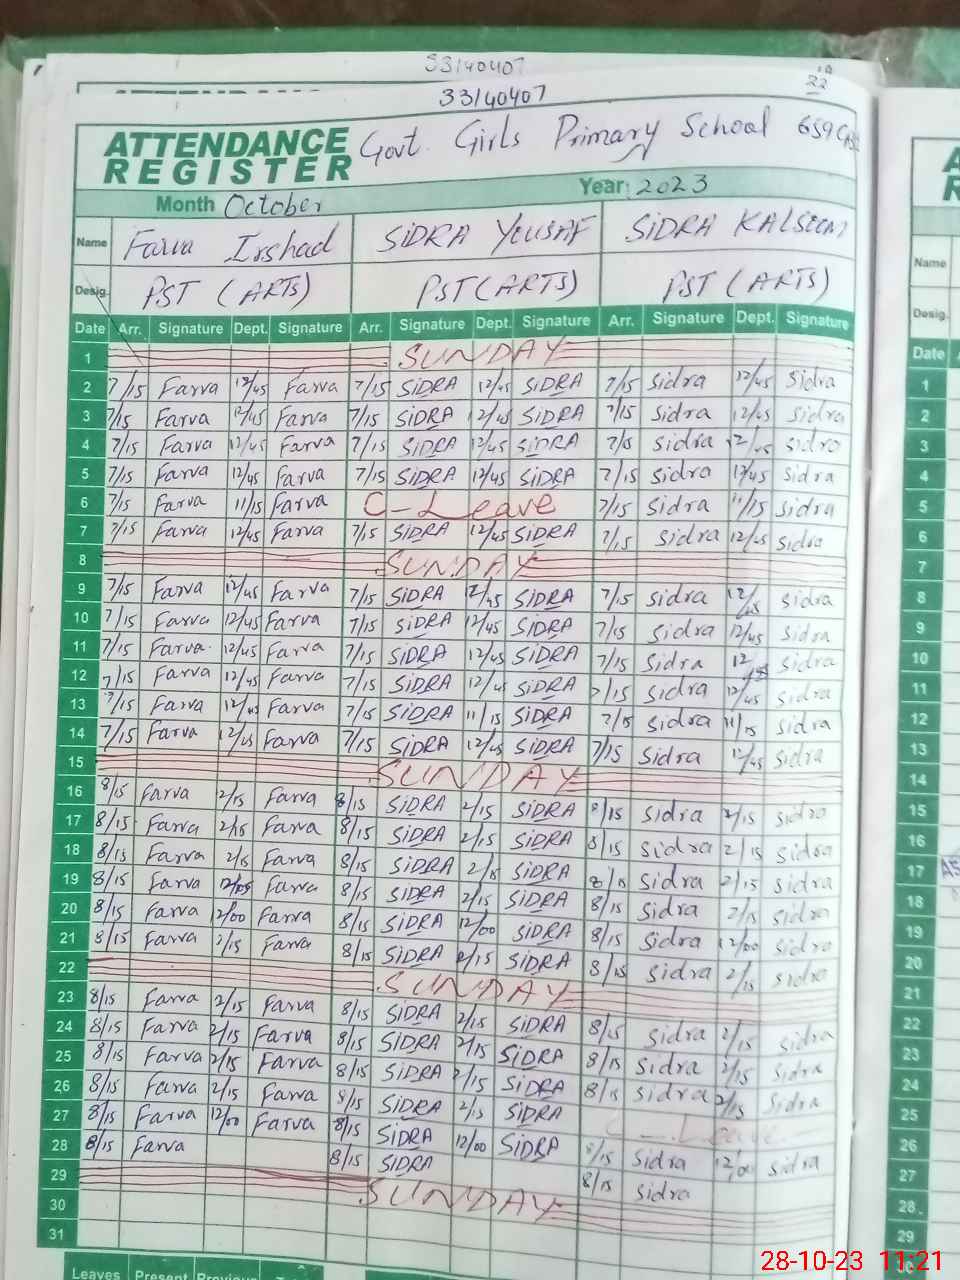 33140407
33140407
22
ATTENDANCE REGISTER Govt. Girls Primary School 659
Month October Year: 2023
Name Farva Irshad SiDRA YOUSAF SiDRA KALSOOM
Desig. PST (ARTs) PST (ARTS) PST (ARTS)
Date Arr. Signature Dept. Signature Arr. Signature Dept. Signature Arr. Signature Dept. Signature
1 SUNDAY
2 7/15 Farva 12/45 Farva 7/15 SiDRA 12/45 SiDRA 7/15 Sidra 12/45 Sidra
3 7/15 Farva 12/45 Farva 7/15 SiDRA 12/45 SiDRA 7/15 Sidra 12/45 Sidra
4 7/15 Farva 12/45 Farva 7/15 SiDRA 12/45 SiDRA 7/15 Sidra 12/45 Sidra
5 7/15 Farva 12/45 Farva 7/15 SiDRA 12/45 SiDRA 7/15 Sidra 12/45 Sidra
6 7/15 Farva 11/15 Farva C-Leave 7/15 Sidra 11/15 Sidra
7 7/15 Farva 12/45 Farva 7/15 SiDRA 12/45 SiDRA 7/15 Sidra 12/45 Sidra
8 SUNDAY
9 7/15 Farva 12/45 Farva 7/15 SiDRA 12/45 SiDRA 7/15 Sidra 12/45 Sidra
10 7/15 Farva 12/45 Farva 7/15 SiDRA 12/45 SiDRA 7/15 Sidra 12/45 Sidra
11 7/15 Farva 12/45 Farva 7/15 SiDRA 12/45 SiDRA 7/15 Sidra 12 Sidra
12 7/15 Farva 12/45 Farva 7/15 SiDRA 12/45 SiDRA 7/15 Sidra 12/45 Sidra
13 7/15 Farva 12/45 Farva 7/15 SiDRA 11/15 SiDRA 7/15 Sidra 11/15 Sidra
14 7/15 Farva 12/45 Farva 7/15 SiDRA 12/45 SiDRA 7/15 Sidra 12/45 Sidra
15 SUNDAY
16 8/15 Farva 2/15 Farva 8/15 SiDRA 2/15 SiDRA 8/15 Sidra 2/15 Sidra
17 8/15 Farva 2/15 Farva 8/15 SiDRA 2/15 SiDRA 8/15 Sidra 2/15 Sidra
18 8/15 Farva 2/15 Farva 8/15 SiDRA 2/15 SiDRA 8/15 Sidra 2/15 Sidra
19 8/15 Farva Farva 8/15 SiDRA 2/15 SiDRA 8/15 Sidra 2/15 Sidra
20 8/15 Farva 12/00 Farva 8/15 SiDRA 12/00 SiDRA 8/15 Sidra 12/00 Sidra
21 8/15 Farva 2/15 Farva 8/15 SiDRA 2/15 SiDRA 8/15 Sidra 2/15 Sidra
22 SUNDAY
23 8/15 Farva 2/15 Farva 8/15 SiDRA 2/15 SiDRA 8/15 Sidra 2/15 Sidra
24 8/15 Farva 2/15 Farva 8/15 SiDRA 2/15 SiDRA 8/15 Sidra 2/15 Sidra
25 8/15 Farva 2/15 Farva 8/15 SiDRA 2/15 SiDRA 8/15 Sidra 2/15 Sidra
26 8/15 Farva 2/15 Farva 8/15 SiDRA 2/15 SiDRA C-Leave
27 8/15 Farva 12/00 Farva 8/15 SiDRA 12/00 SiDRA 8/15 Sidra 12/00 Sidra
28 8/15 Farva 8/15 SiDRA 8/15 Sidra
29 SUNDAY
30
31
Leaves Present Previous
Name
Desig.
Date
1
2
3
4
5
6
7
8
9
10
11
12
13
14
15
16
17
18
19
20
21
22
23
24
25
26
27
28
29
28-10-23 11:21